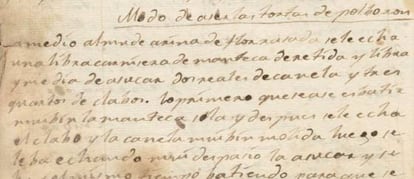 Modo de aser las tortas de polboron
a medio almud de arina de flor rasada se le echa
una libra carnisera de manteca deretida y libra
y media de asucar dos reales de canela y tres
quartos de clabos. lo primero que se ase es batir
mui bien la manteca sola y despues se le echa
el clabo y la canela mui bien molida luego se
le ba echando mui despasio la asucar y se
mismo batiendo para que se